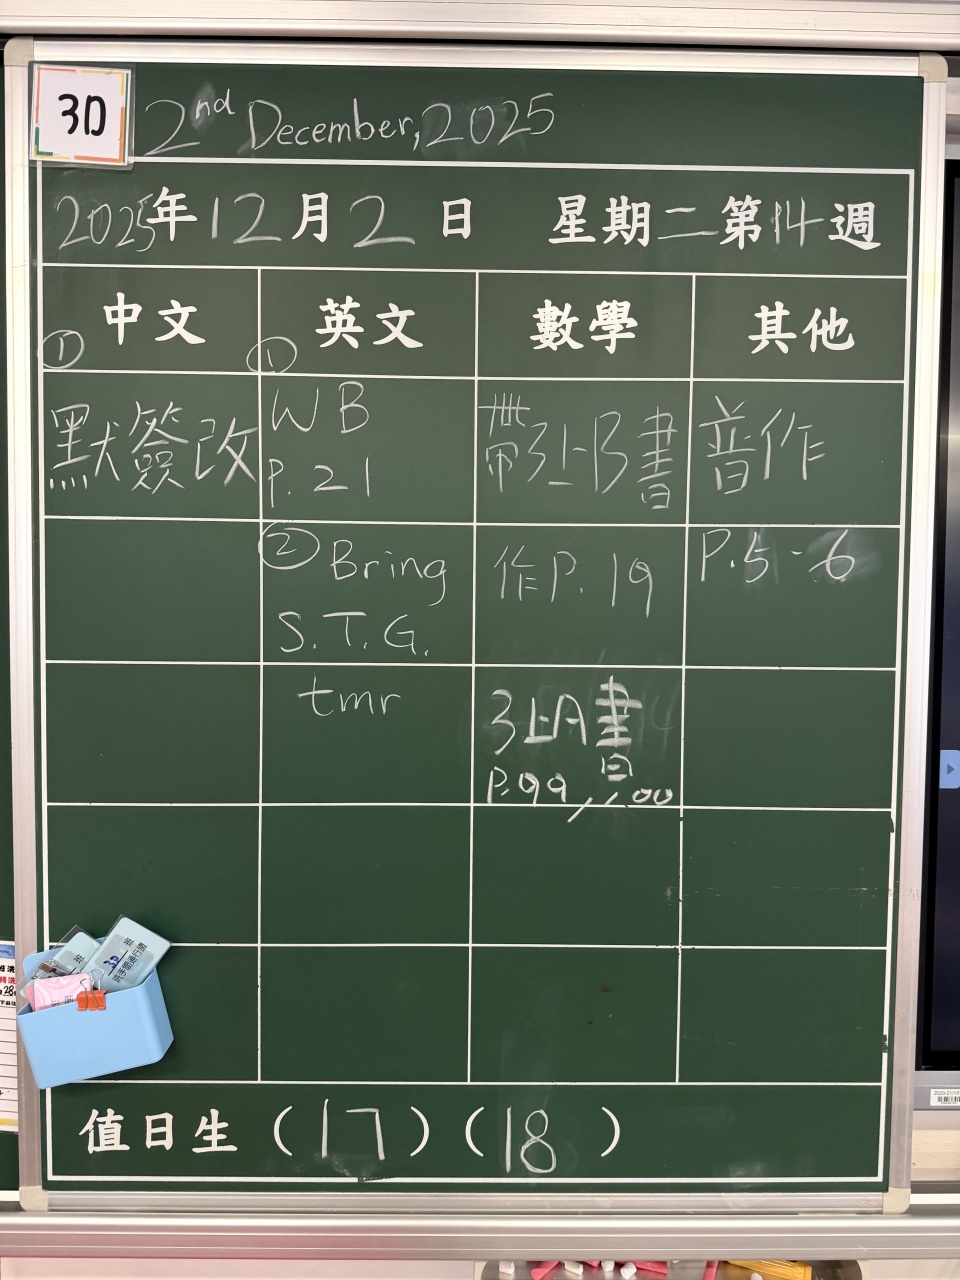 3D
2nd December, 2025
2025年12月2日 星期二第14週
中文 英文 數學 其他
① ①
默簽改
WB
P.21
② Bring
S.T.G.
tmr
帶3上B書
作P.19
3上A書
P.99,100
普作
P.5-6
值日生(17)(18)